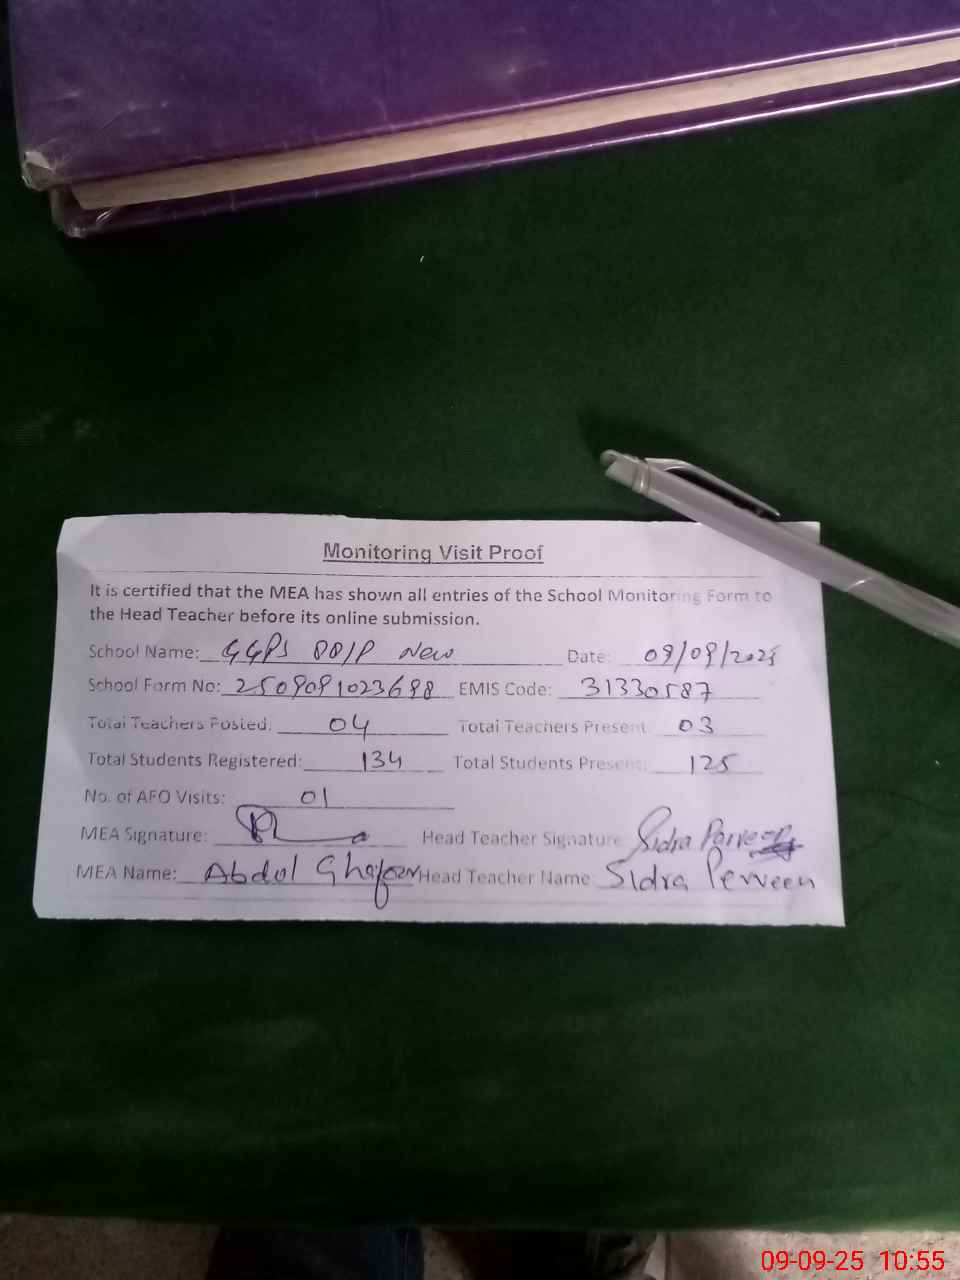 Monitoring Visit Proof
It is certified that the MEA has shown all entries of the School Monitoring Form to
the Head Teacher before its online submission.
School Name: GGPS 88/P New Date: 09/09/2025
School Form No: 2509091023698 EMIS Code: 31330587
Total Teachers Posted: 04 Total Teachers Present: 03
Total Students Registered: 134 Total Students Present: 125
No. of AFO Visits: 01
MEA Signature: Head Teacher Signature Sidra Parveen
MEA Name: Abdul Ghafoor Head Teacher Name Sidra Perveen
09-09-25 10:55